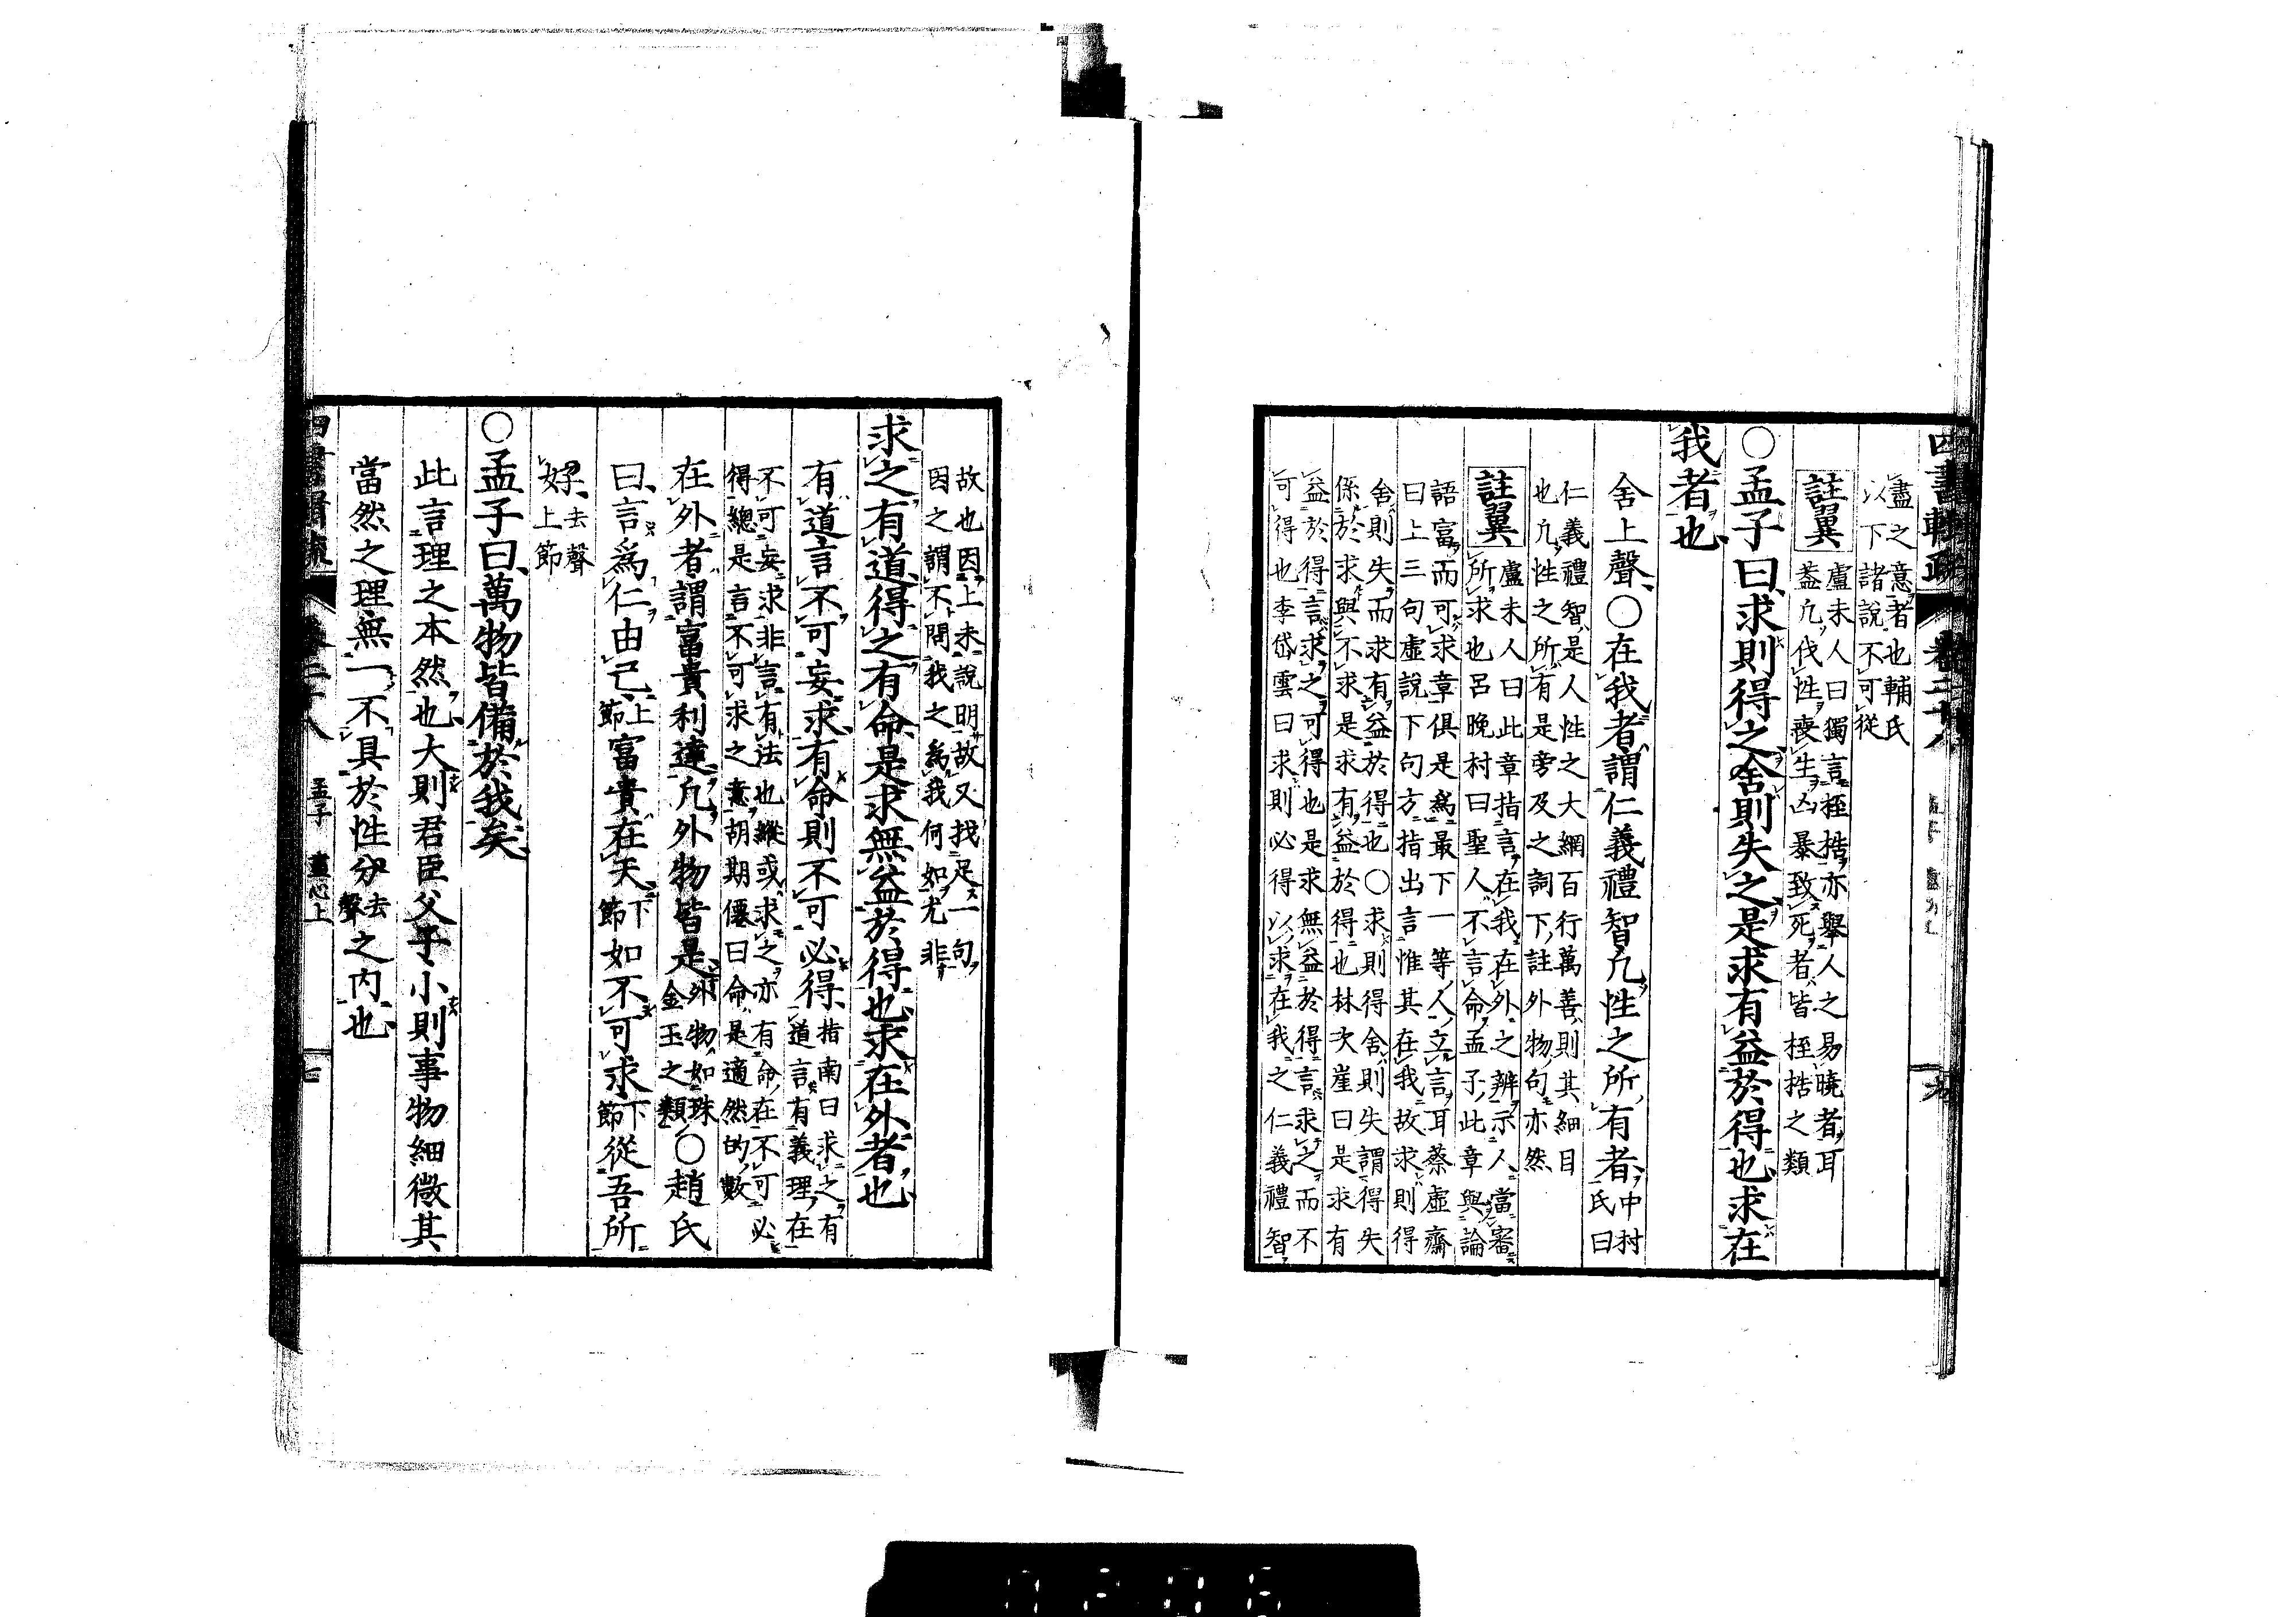 四書輯疏 卷二十八
盡之意者也輔氏
以下諸說不可從
註翼
盧未人曰獨言桎梏亦舉人之易曉者耳
蓋凡伐性喪生凶暴致死者皆桎梏之類
○孟子曰求則得之舍則失之是求有益於得也求在
我者也
舍上聲○在我者謂仁義禮智凡性之所有者
中村
氏曰
仁義禮智是人性之大綱百行萬善則其細目
也凡性之所有是旁及之詞下註外物句亦然
註翼
盧未人曰此章指言在我在外之辨示人當審
所求也呂晚村曰聖人不言命孟子此章與論
語富而可求章俱是為最下一等人立言耳蔡虛齋
曰上三句虛說下句方指出言惟其在我故求則得
舍則失而求有益於得也○求則得舍則失謂得失
係於求與不求是求有益於得也林次崖曰是求有
益於得言求之可得也是求無益於得言求之而不
可得也李岱雲曰求則必得以求在我之仁義禮智
故也因上未說明故又找足一句
因之謂不問我之為我何如尤非
求之有道得之有命是求無益於得也求在外者也
有道言不可妄求有命則不可必得
指南曰求之有
道言有義理在
不可妄求非言有法也縱或求之亦有命在不可必
得總是言不可求之意胡期僊曰命是適然的數
在外者謂富貴利達凡外物皆是
外物如珠
金玉之類
○趙氏
曰言為仁由己
上
節
富貴在天
下
節
如不可求
下
節
從吾所
好
去聲
上節
○孟子曰萬物皆備於我矣
此言理之本然也大則君臣父子小則事物細微其
當然之理無一不具於性分
去
聲
之內也
四書輯疏 卷二十八 孟子 盡心上 七